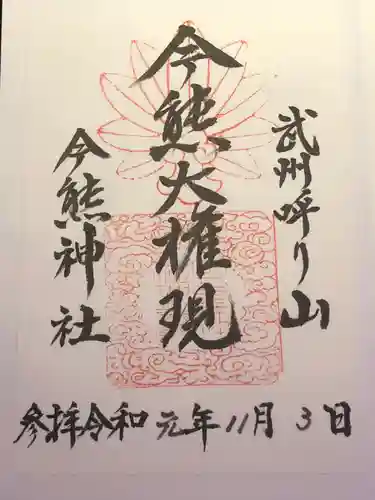 武州呼り山
今熊大権現
今熊神社
参拝令和元年11月3日